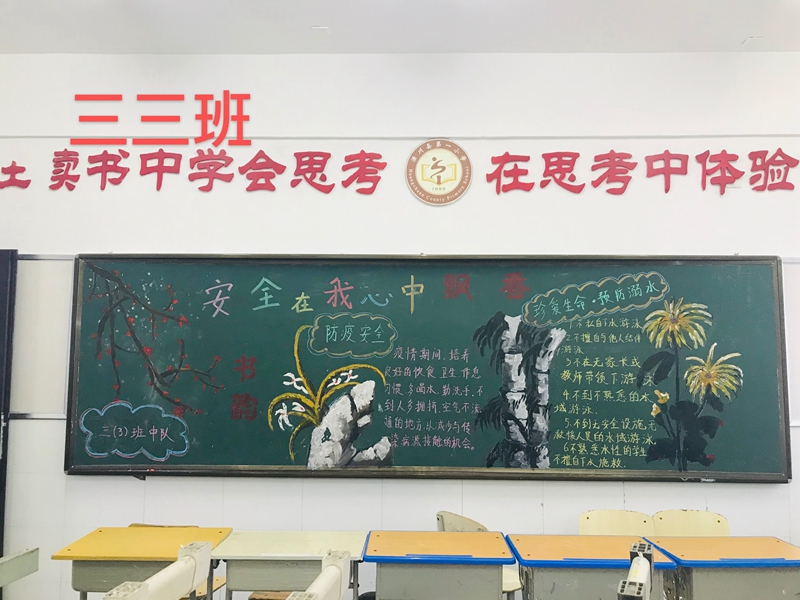 三三班
卖书中学会思考
在思考中体验
1989
安全在我心中飘香
书韵
三(3)班中队
防疫安全
疫情期间,培养
良好的饮食卫生作息
习惯,多喝水,勤洗手,不
到人多拥挤,空气不流
通的地方,从减少与传
染病源接触的机会。
珍爱生命·预防溺水
1.不私自下水游泳
2.不擅自与他人结伴
游泳
3.不在无家长或
教师带领下游泳
4.不到不熟悉的水
域游泳.
5.不到无安全设施、无
救援人员的水域游泳
6.不熟悉水性的学生
不擅自下水施救.